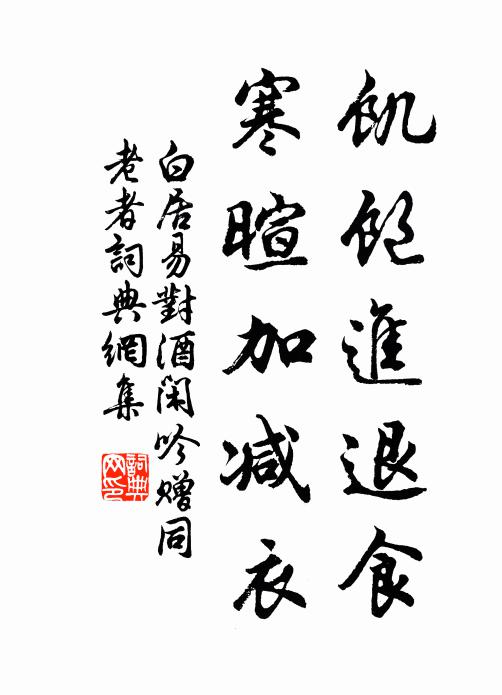 飢飽進退食
寒暄加減衣
白居易對酒閑吟贈同
老者詞典網集
詞典网印